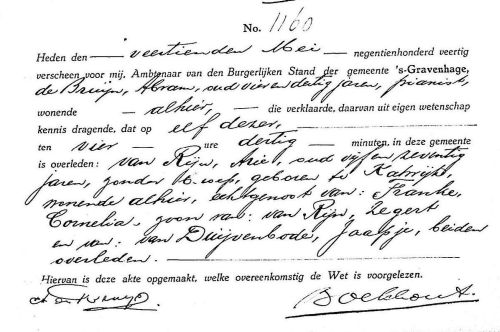 No. 1160
Heden den veertienden Mei negentienhonderd veertig
verscheen voor mij, Ambtenaar van den Burgerlijken Stand der gemeente 's-Gravenhage,
de Bruijn, Abram, oud vier en dertig jaren, pianist,
wonende alhier, die verklaarde, daarvan uit eigen wetenschap
kennis dragende, dat op elf dezer,
ten vier ure dertig minuten, in deze gemeente
is overleden: van Rijn, Arie, oud vijf en zeventig
jaren, zonder beroep, geboren te Katwijk,
wonende alhier, echtgenoot van: Franke,
Cornelia, zoon van: van Rijn, Zegert
en van: van Duijvenbode, Jaapje, beiden
overleden.
Hiervan is deze akte opgemaakt, welke overeenkomstig de Wet is voorgelezen.
Boekhout.